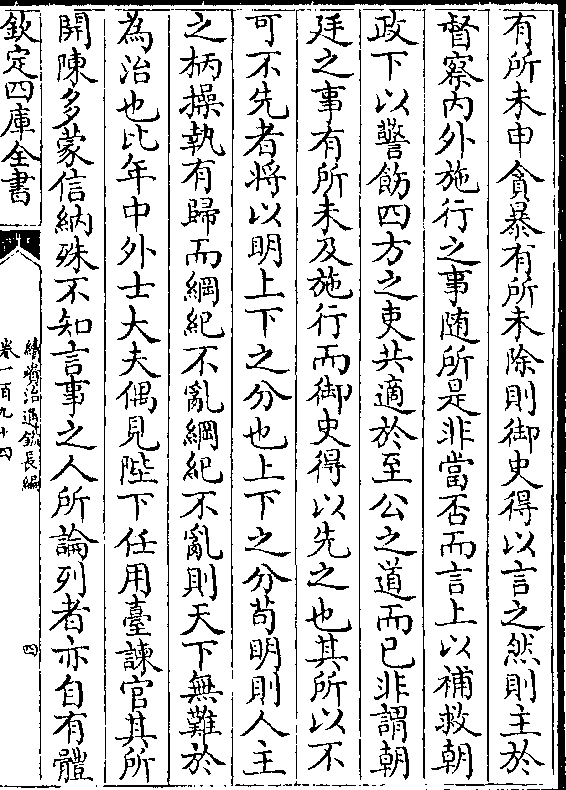 有所未申貪暴有所未除則御史得以言之然則主於
督察内外施行之事随所是非當否而言上以補救朝
政下以警飭四方之吏共適於至公之道而已非謂朝
廷之事有所未及施行而御史得以先之也其所以不
可不先者將以明上下之分也上下之分苟明則人主
之柄操執有歸而綱紀不亂綱紀不亂則天下無難於
為治也比年中外士大夫偶見陛下任用臺諫官其所
開陳多蒙信納殊不知言事之人所論列者亦自有體
欽定四庫全書
續資治通鑑長編
卷一百九十四
四